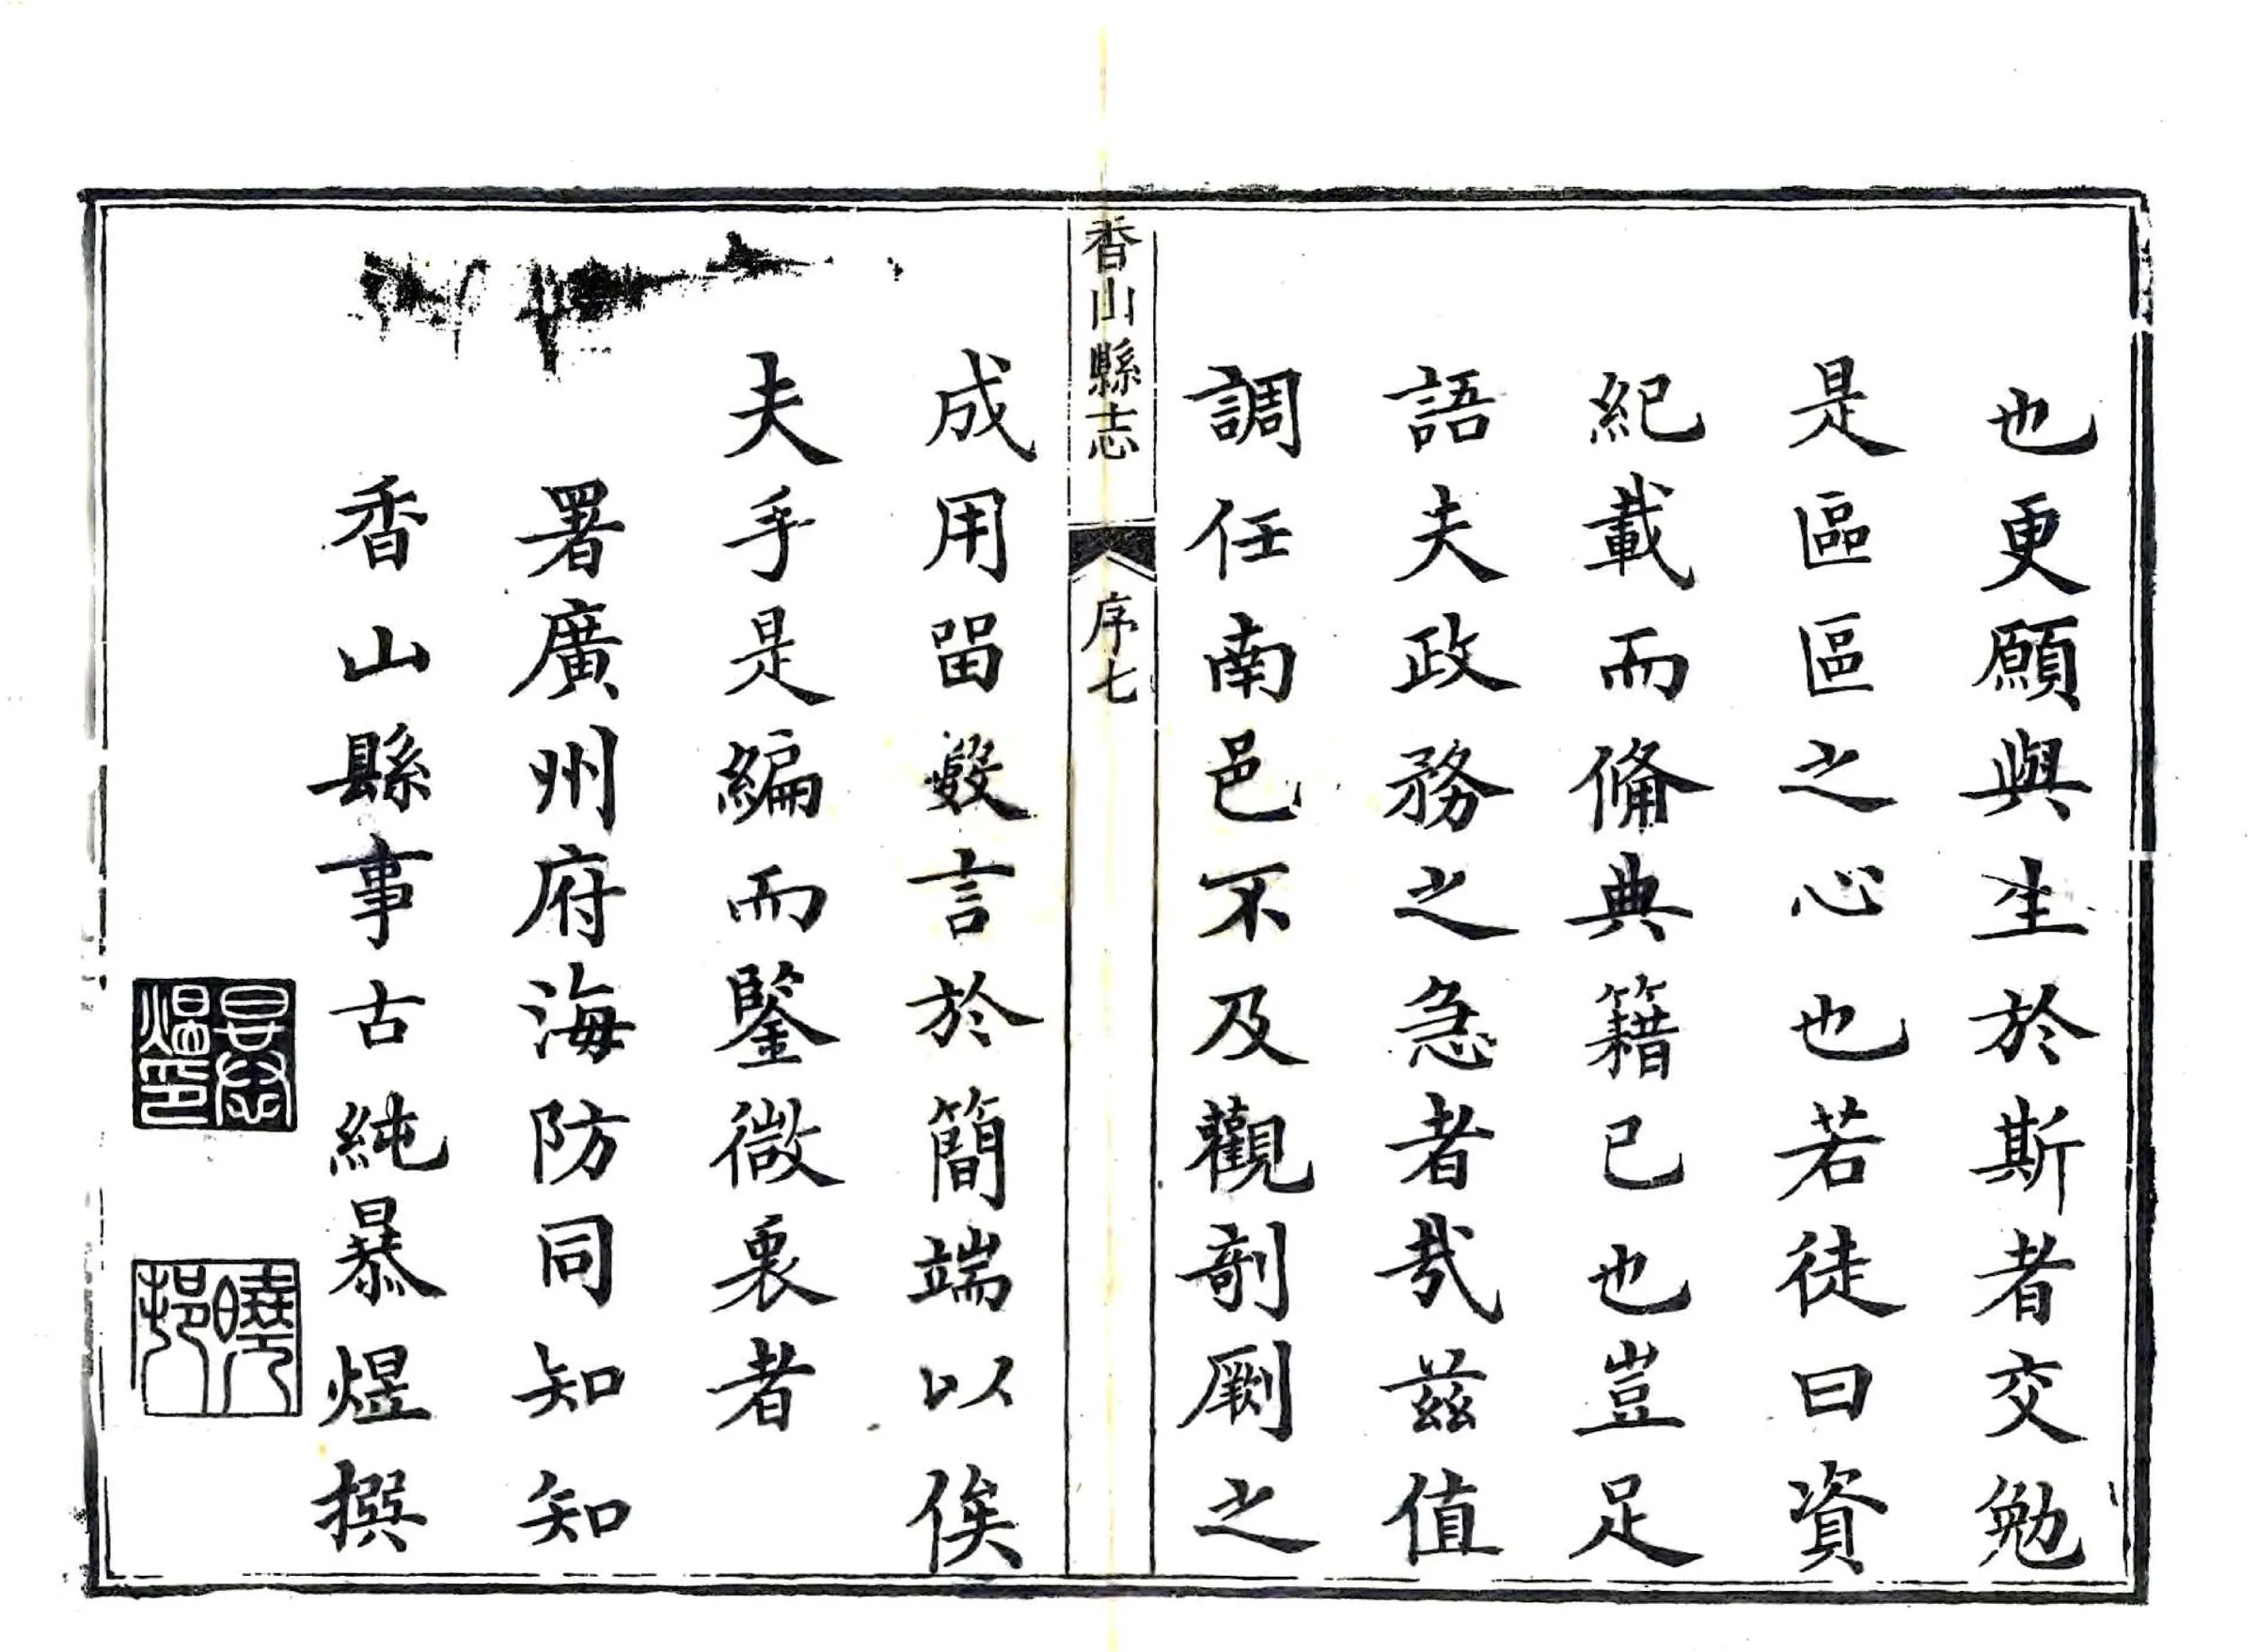 也更願與生於斯者交勉
是區區之心也若徒曰資
紀載而俻典籍已也豈足
語夫政務之急者㢤茲值
調任南邑不及觀剞劂之
香山縣志
序七
成用畱數言於簡端以俟
夫手是編而鑒微衷者
署廣州府海防同知知
香山縣事古純暴煜撰
暴煜印
曉邨